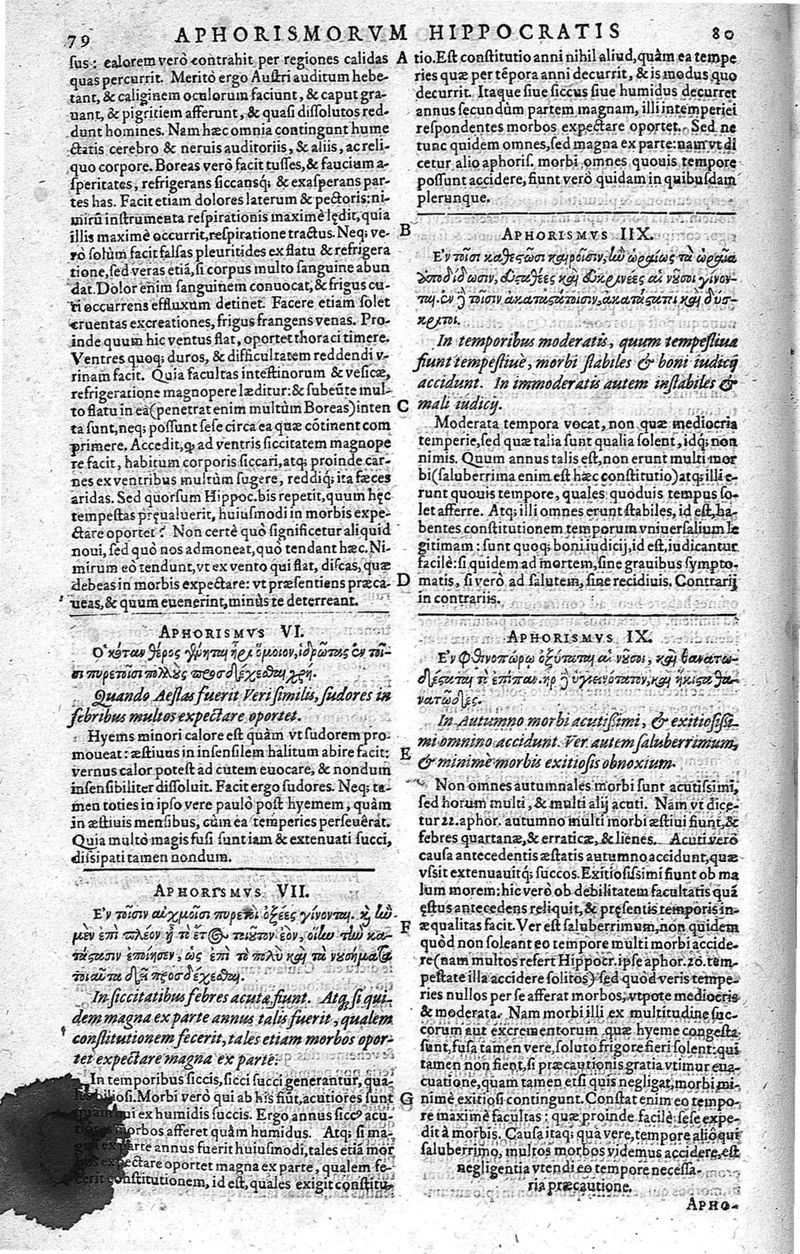 79 APHORISMORVM HIPPOCRATIS 80
sus: calorem verò contrahit per regiones calidas
quas percurrit. Meritò ergo Austri auditum hebe-
tant, & caliginem oculorum faciunt, & caput gra-
uant, & pigritiem afferunt, & quasi dissolutos red-
dunt homines. Nam hæc omnia contingunt hume
ctatis cerebro & neruis auditoriis, & aliis, ac reli-
quo corpore. Boreas verò facit tusses, & faucium a-
speritates, refrigerans siccansq; & exasperans par-
tes has. Facit etiam dolores laterum & pectoris: ni-
mirũ instrumenta respirationis maximè lędit, quia
illis maximè occurrit, respiratione tractus. Neq; ve-
rò solùm facit falsas pleuritides ex flatu & refrigera
tione, sed veras etiã, si corpus multo sanguine abun
dat. Dolor enim sanguinem conuocat, & frigus cu-
ti occurrens effluxum detinet. Facere etiam solet
cruentas excreationes, frigus frangens venas. Pro-
inde quum hic ventus flat, oportet thoraci timere.
Ventres quoq; duros, & difficultatem reddendi v-
rinam facit. Quia facultas intestinorum & vesicæ,
refrigeratione magnopere læditur: & subeũte mul-
to flatu in ea (penetrat enim multùm Boreas) inten
ta sunt, neq; possunt sese circa ea quæ cõtinent com
primere. Accedit, q; ad ventris siccitatem magnope
re facit, habitum corporis siccari, atq; proinde car-
nes ex ventribus multùm sugere, reddiq; ita fæces
aridas. Sed quorsum Hippoc. bis repetit, quum hęc
tempestas pręualuerit, huiusmodi in morbis expe-
ctare oportet? Non certè quò significetur aliquid
noui, sed quò nos admoneat, quò tendant hæc. Ni-
mirum eò tendunt, vt ex vento qui flat, discas, quæ
debeas in morbis expectare: vt præsentiens præca-
ueas, & quum euenerint, minùs te deterreant.
APHORISMVS VI.
Ὁκόταν θέρος γένηται ἦρι ὅμοιον, ἱδρῶτας ἐν τοῖ-
σι πυρετοῖσι πολλοὺς προσδέχεσθαι χρή.
Quando Aestas fuerit Veri similis, sudores in
febribus multos expectare oportet.
Hyems minori calore est quàm vt sudorem pro-
moueat: æstiuus in insensilem halitum abire facit:
vernus calor potest ad cutem euocare, & nondum
insensibiliter dissoluit. Facit ergo sudores. Neq; ta-
men toties in ipso vere paulò post hyemem, quàm
in æstiuis mensibus, cùm ea temperies perseuêrat.
Quia multò magis fusi sunt iam & extenuati succi,
dissipati tamen nondum.
APHORISMVS VII.
Ἐν τοῖσιν αὐχμοῖσι πυρετοὶ ὀξέες γίνονται. κἢ ἢν
μὲν ἐπὶ πλέον ᾖ τὸ ἔτος τοιοῦτον ἐὸν, οἵην τὴν κα-
τάστασιν ἐποίησεν, ὡς ἐπὶ τὸ πολὺ καὶ τὰ νουσήματα
τοιαῦτα δεῖ προσδέχεσθαι.
In siccitatibus febres acutæ fiunt. Atq; si qui-
dem magna ex parte annus talis fuerit, qualem
constitutionem fecerit, tales etiam morbos opor-
tet expectare magna ex parte.
In temporibus siccis, sicci succi generantur, qua-
les biliosi. Morbi verò qui ab his fiũt, acutiores sunt
quàm qui ex humidis succis. Ergo annus siccꝰ acu-
tiores morbos afferet quàm humidus. Atq; si ma-
gna ex parte annus fuerit huiusmodi, tales etiã mor
bos expectare oportet magna ex parte, qualem fe-
cerit constitutionem, id est, quales exigit constitu-
A
B
C
D
E
F
G
tio. Est constitutio anni nihil aliud, quàm ea tempe
ries quæ per tẽpora anni decurrit, & is modus quo
decurrit. Itaque siue siccus siue humidus decurret
annus secundùm partem magnam, illi intemperiei
respondentes morbos expectare oportet. Sed ne
tunc quidem omnes, sed magna ex parte: nam vt di
cetur alio aphoris. morbi omnes quouis tempore
possunt accidere, fiunt verò quidam in quibusdam
plerunque.
APHORISMVS IIX.
Ἐν τοῖσι καθεστῶσι καιροῖσιν, ἢν ὡραίως τὰ ὡραῖα
ἀποδιδῶσιν, εὐσταθέες καὶ εὐκρινέες αἱ νοῦσοι γίνον-
ται. ἐν δὲ τοῖσιν ἀκαταστάτοισιν, ἀκατάστατοι καὶ δύσ-
κριτοι.
In temporibus moderatis, quum tempestiua
fiunt tempestiuè, morbi stabiles & boni iudicij
accidunt. In immoderatis autem instabiles &
mali iudicij.
Moderata tempora vocat, non quæ mediocria
temperie, sed quæ talia sunt qualia solent, idq; non
nimis. Quum annus talis est, non erunt multi mor
bi (saluberrima enim est hæc constitutio) atq; illi e-
runt quouis tempore, quales quoduis tempus so-
let afferre. Atq; illi omnes erunt stabiles, id est, ha-
bentes constitutionem temporum vniuersalium le
gitimam: sunt quoq; boni iudicij, id est, iudicantur
facilè: si quidem ad mortem, sine grauibus sympto-
matis, si verò ad salutem, sine recidiuis. Contrarij
in contrariis.
APHORISMVS IX.
Ἐν φθινοπώρῳ ὀξύταται αἱ νοῦσοι, καὶ θανατω-
δέσταται τὸ ἐπίπαν. ἦρ δὲ ὑγιεινότατον, καὶ ἥκιστα θα-
νατῶδες.
In Autumno morbi acutissimi, & exitiosissi-
mi omnino accidunt. Ver autem saluberrimum,
& minimè morbis exitiosis obnoxium.
Non omnes autumnales morbi sunt acutissimi,
sed horum multi, & multi alij acuti. Nam vt dice-
tur 22. aphor. autumno multi morbi æstiui fiunt, &
febres quartanæ, & erraticæ, & lienes. Acuti verò
causa antecedentis æstatis autumno accidunt, quæ
vssit extenuauitq; succos. Exitiosissimi fiunt ob ma
lum morem: hic verò ob debilitatem facultatis quã
ęstus antecedens reliquit, & pręsentis temporis in-
æqualitas facit. Ver est saluberrimum, non quidem
quòd non soleant eo tempore multi morbi accide-
re (nam multos refert Hippocr. ipse aphor. 20. tem-
pestate illa accidere solitos) sed quòd veris tempe-
ries nullos per se afferat morbos, vtpote mediocris
& moderata. Nam morbi illi ex multitudine suc-
corum aut excrementorum quæ hyeme congesta
sunt, fusa tamen vere, soluto frigore fieri solent: qui
tamen non fient, si præcautionis gratia vtimur eua-
cuatione, quam tamen etsi quis negligat, morbi mi-
nimè exitiosi contingunt. Constat enim eo tempo-
re maximè facultas: quæ proinde facilè sese expe-
dit à morbis. Causa itaq; quà vere, tempore alioqui
saluberrimo, multos morbos videmus accidere, est
negligentia vtendi eo tempore necessa-
ria præcautione.
APHO-